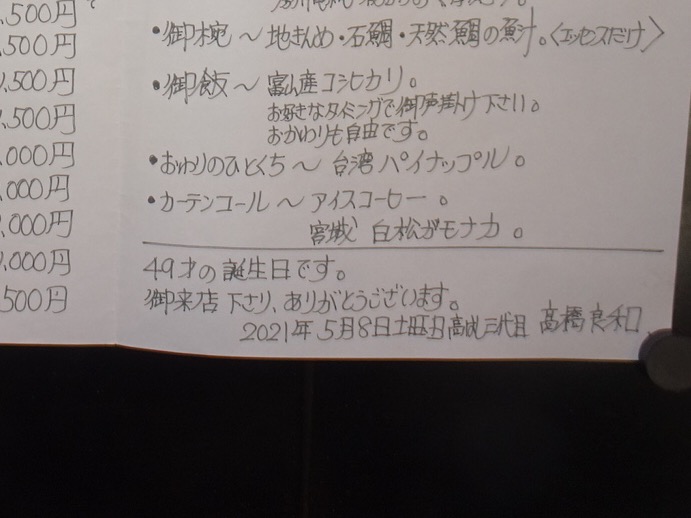 ,500円
,500円
,500円
,500円
,000円
,000円
,000円
,000円
,500円
・御椀～地きんめ・石鯛・天然鯛の魚汁。〈エッセンスだけ〉
・御飯～富山産コシヒカリ。
お好きなタイミングで御声掛け下さい。
おかわりも自由です。
・おわりのひとくち～台湾パイナップル。
・カーテンコール～アイスコーヒー。
宮城 白松がモナカ。
49才の誕生日です。
御来店下さり、ありがとうございます。
2021年5月8日土曜日 三代目 高橋良和